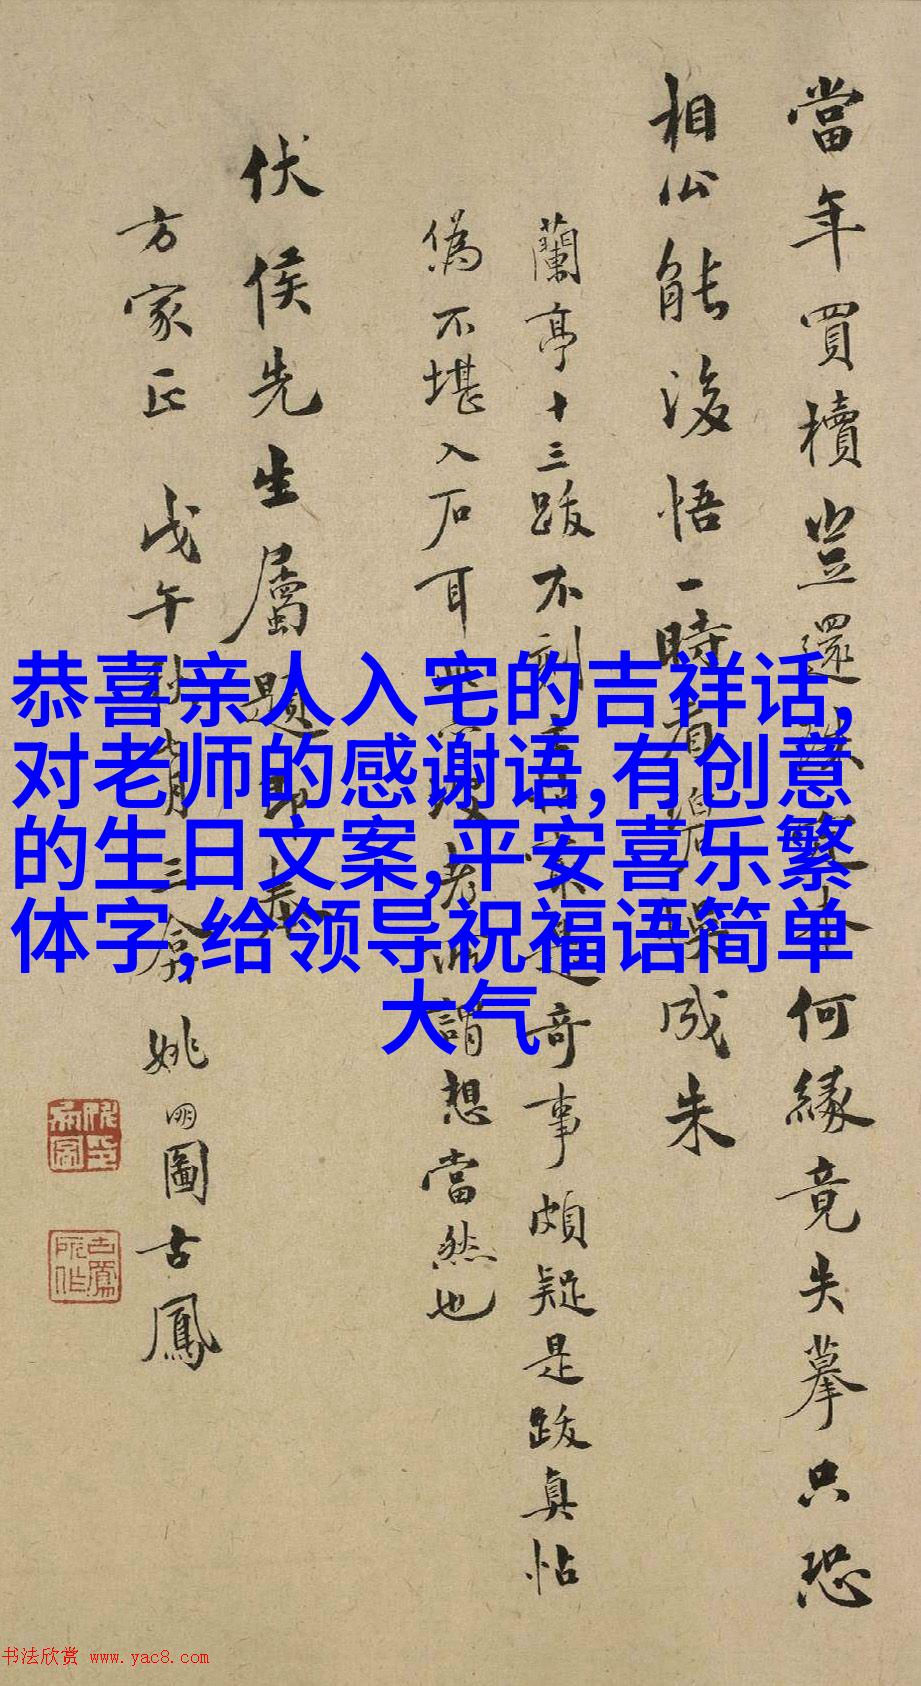 當年買櫝豈還珠本何緣竟失摹只恐
相公能後悟一時看碧成朱
蘭亭十三跋不刻奇事頗疑是跋真帖
偽不堪入石耳謂想當然也
伏侯先生屬題即奉
方家正 戊午秋三 姚明圖古鳳
恭喜亲人入宅的吉祥话,
对老师的感谢语,有创意
的生日文案,平安喜乐繁
体字,给领导祝福语简单
大气
书法欣赏 www.yac8.com